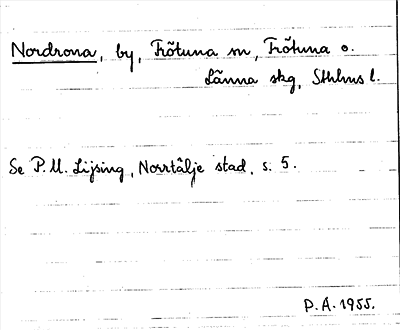 Nordrona, by, Frötuna sn, Frötuna o.
Länna skg, Sthlms l.
Se P. U. Lijsing, Norrtälje stad, s. 5.
P. A. 1955.